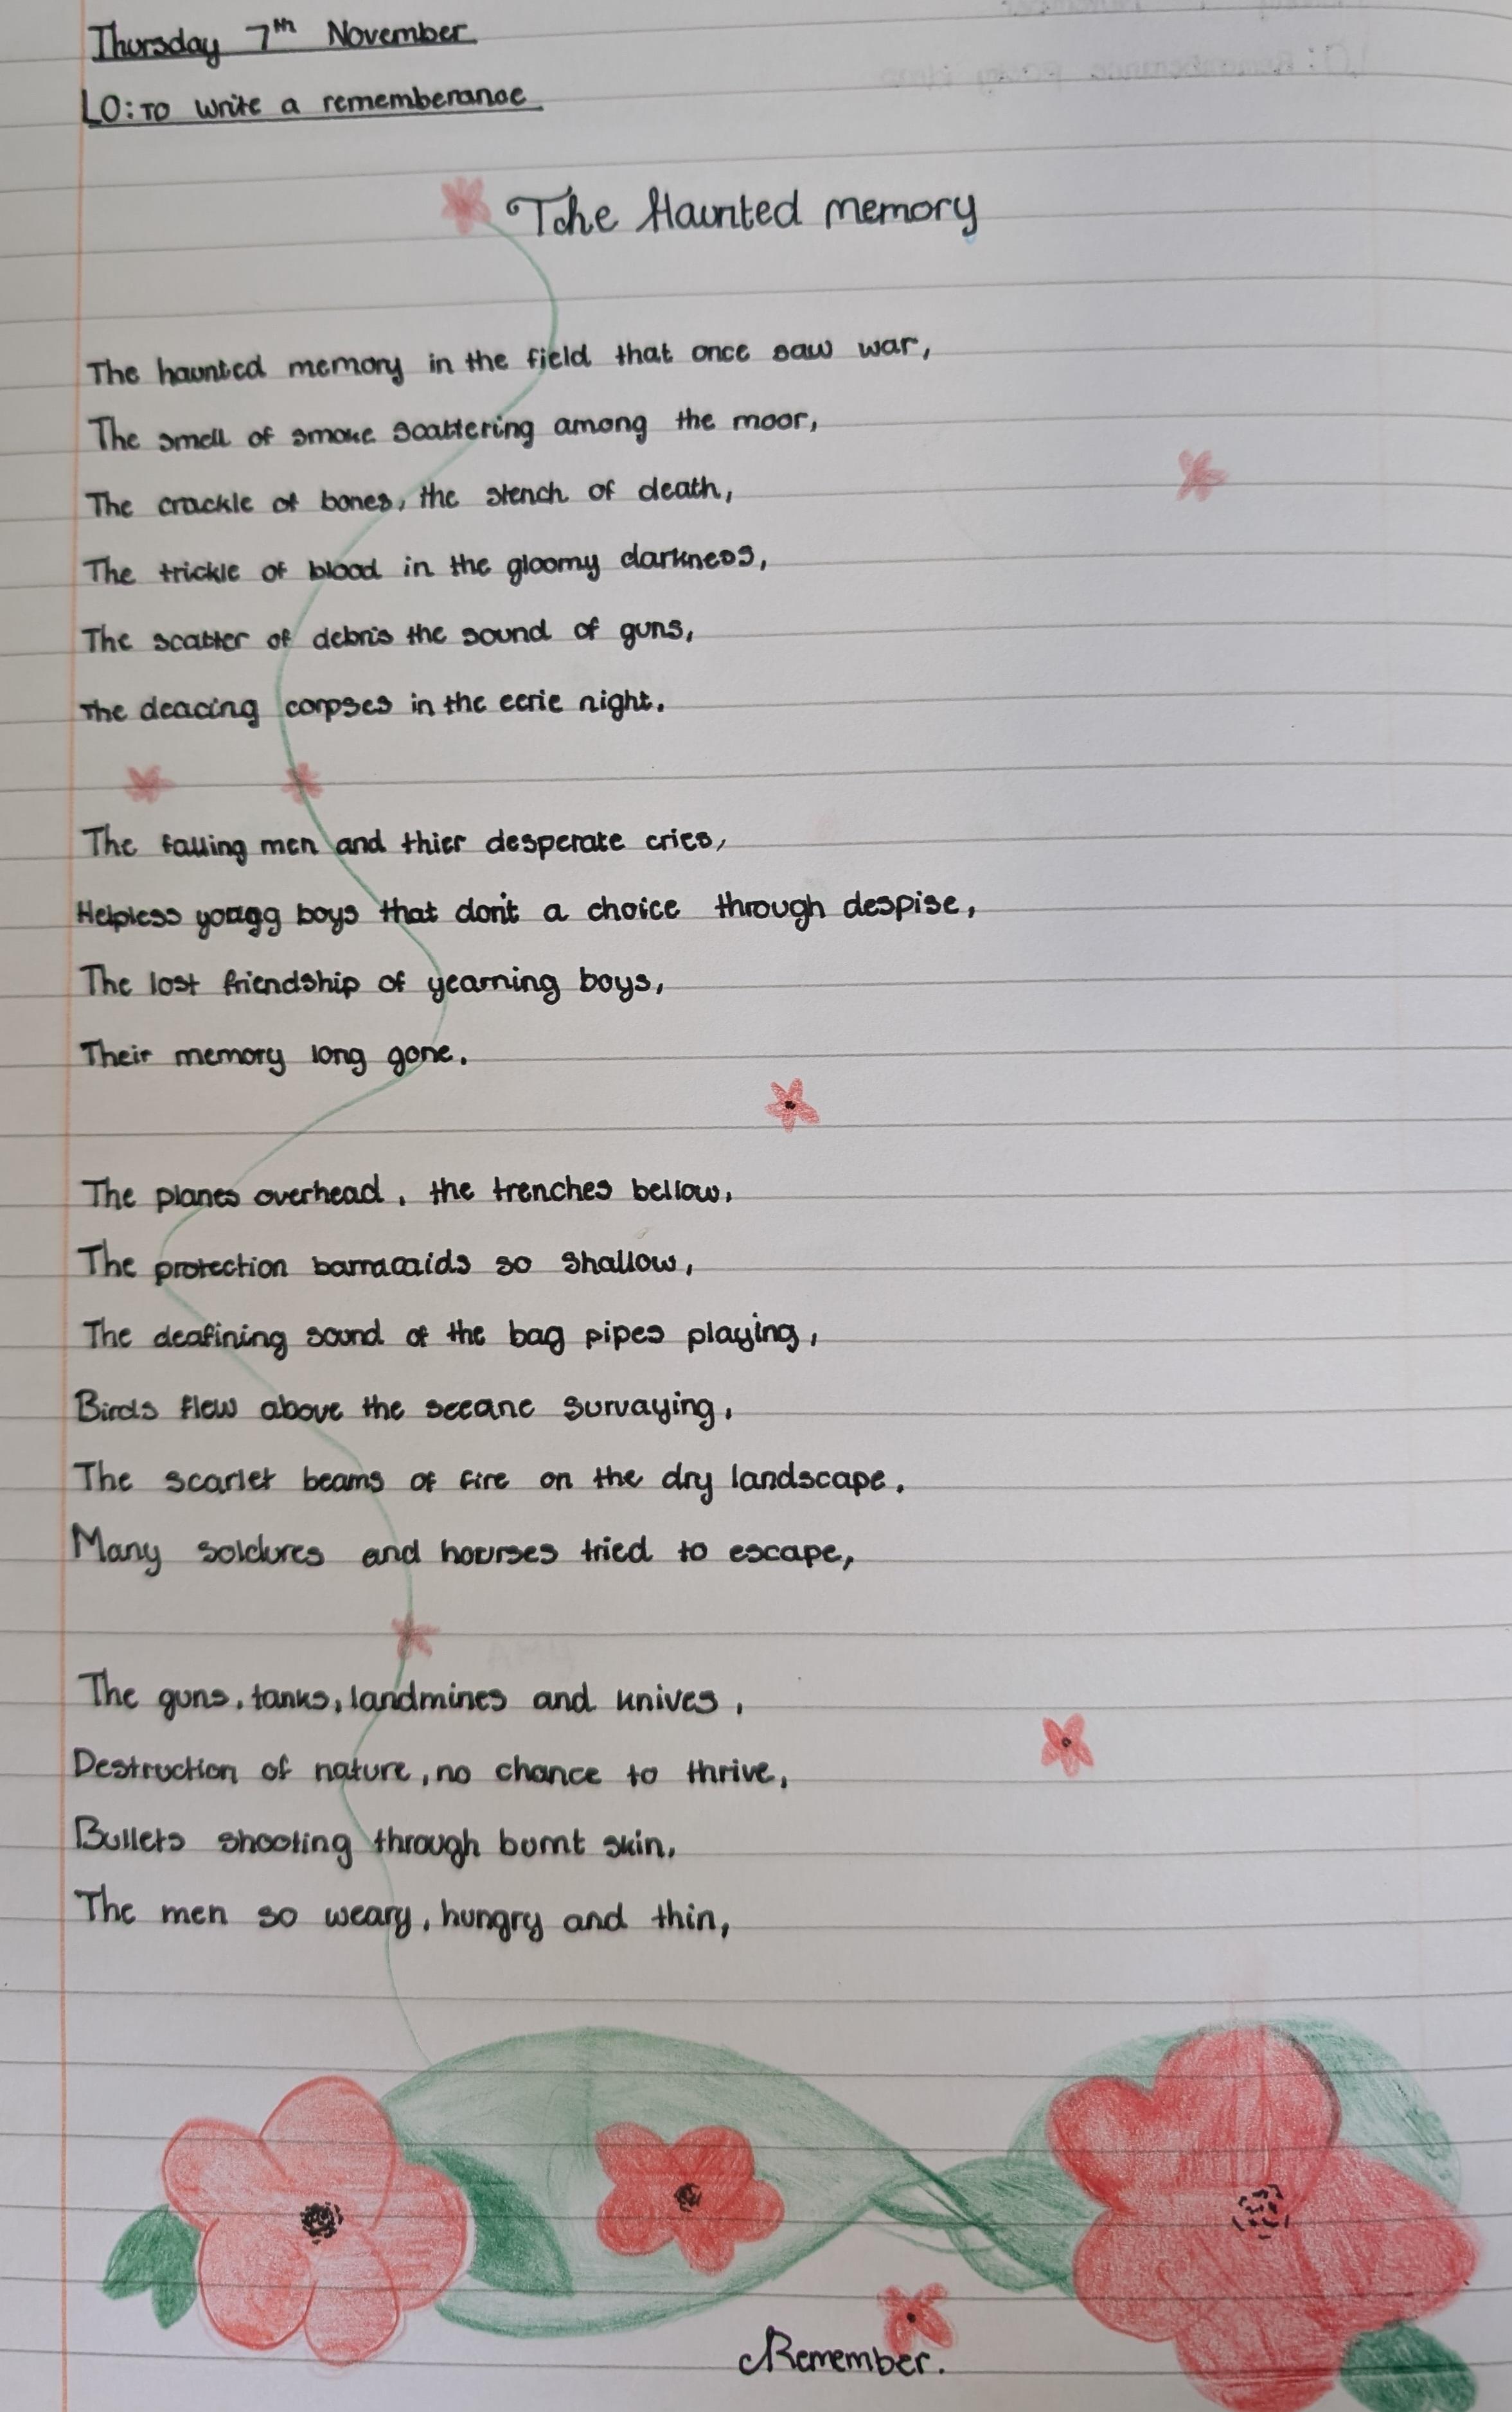 Thursday 7th November
LO: To write a rememberance
The Haunted memory
The haunted memory in the field that once saw war,
The smell of smoke scattering among the moor,
The crackle of bones, the stench of death,
The trickle of blood in the gloomy darkness,
The scatter of debris the sound of guns,
The deacing corpses in the eerie night.
The falling men and thier desperate cries,
Helpless young boys that don't a choice through despise,
The lost friendship of yearning boys,
Their memory long gone.
The planes overhead, the trenches bellow,
The protection barracaids so shallow,
The deafining sound of the bag pipes playing,
Birds flew above the seeane survaying,
The scarlet beams of fire on the dry landscape.
Many soldures and hourses tried to escape,
The guns, tanks, landmines and knives,
Destruction of nature, no chance to thrive,
Bullets shooting through burnt skin,
The men so weary, hungry and thin,
Remember.